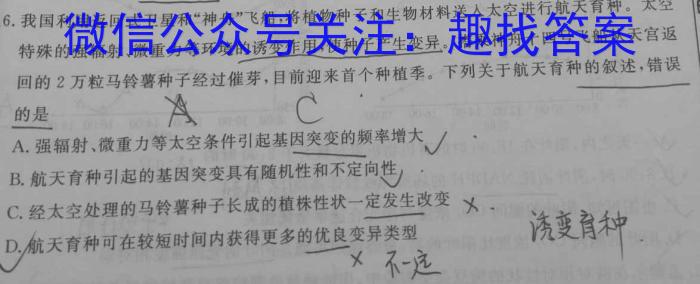 6. 我国利用返回式卫星和“神舟”飞船,将植物种子和生物材料送入太空进行航天育种。太空
微信公众号关注：趣找答案
特殊的强辐射、微重力等环境的诱变作用,使种子产生变异。
回的2万粒马铃薯种子经过催芽,目前迎来首个种植季。下列关于航天育种的叙述,错误
的是
A C
A. 强辐射、微重力等太空条件引起基因突变的频率增大
B. 航天育种引起的基因突变具有随机性和不定向性
C. 经太空处理的马铃薯种子长成的植株性状一定发生改变 ×
诱变育种
D. 航天育种可在较短时间内获得更多的优良变异类型
× 不一定